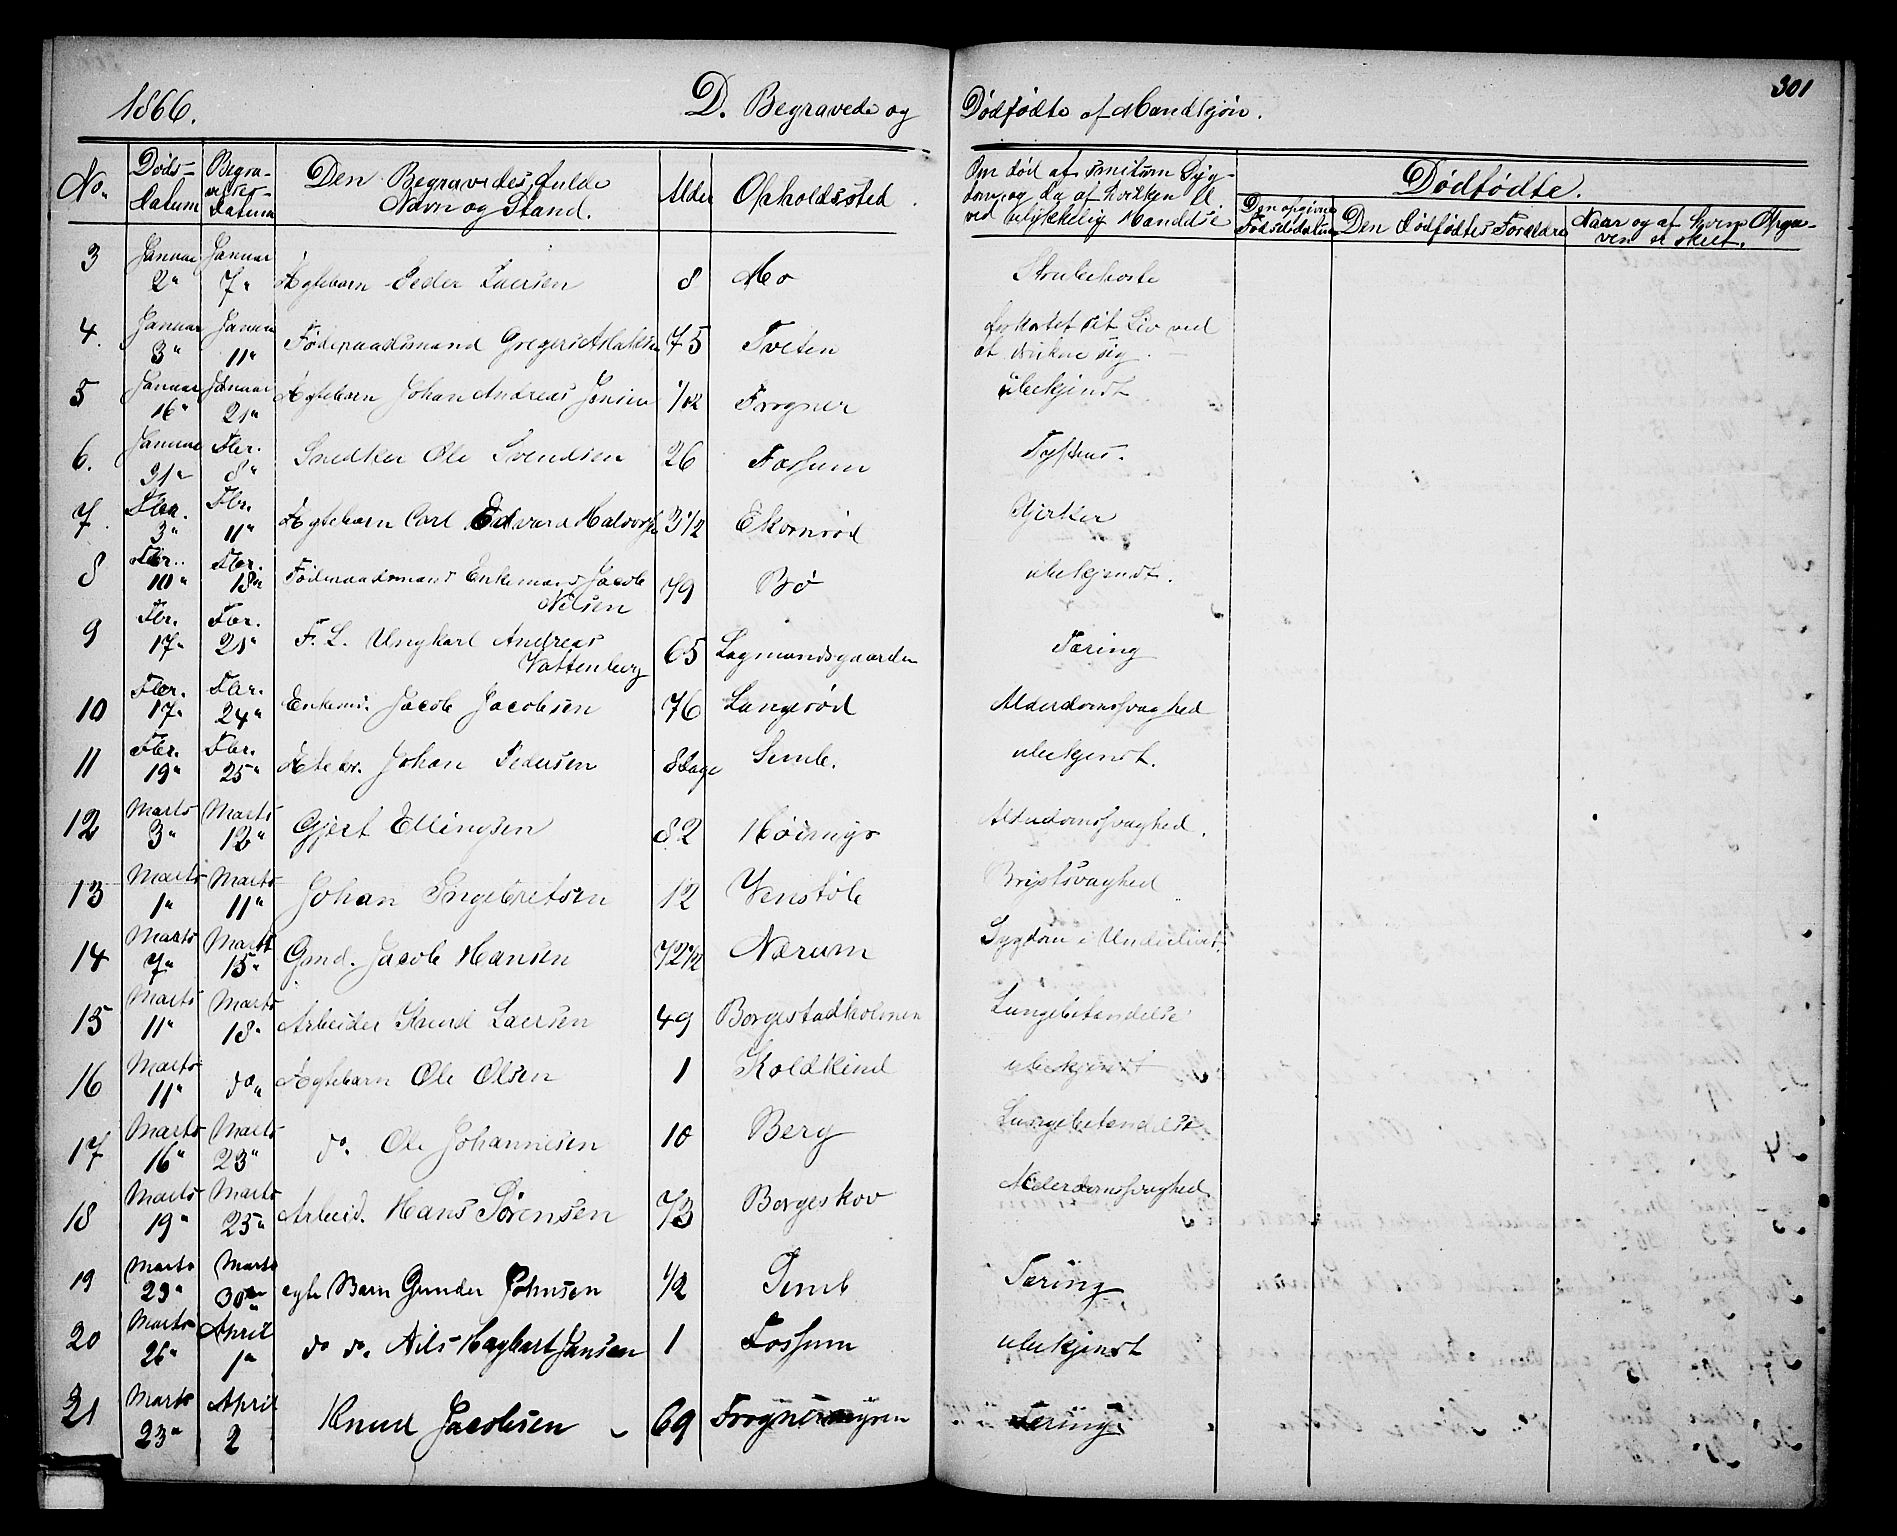 301
1866. D. Begravede og Dødfødte af Mandkjøn.
No. Døds-Datum Begravelses-Datum Den Begravedes fulde Navn og Stand. Alder Opholdssted. Om død af smitsom Syg-
dom, og da af hvilken el.
ved ulykkelig Hændelse
Dødfødte.
Den opgivne Fødselsdatum Den Dødfødtes Forældre Naar og af hvem Opga-
ven er skeet.
3 Januar 2" Januar 7" Ægtebarn Peder Larsen 8 Mo Strubehoste
4. Januar 3" Januar 11" Føderaadsmand Gregers 75 Tveten forkortet sit Liv ved
at drukne sig.
5 Januar 16" Januar 21" Ægtebarn Johan Andreas Jensen Frogner ubekjendt
6. Januar 31" Fbr. 8" Snedker Ole Svendsen 26 Fossum Tyfus.
7. Fbr. 3" Fbr. 11" Ægtebarn Carl Edvard Halvors 3 1/2 Ekornrød Kirtler
8 Fbr. 10" Fbr. 18" Føderaadsmand Enkemand Jacob
Nilsen 79 Bø ubekjendt.
9 Fbr. 17" Fbr. 21" F. L. Ungkarl Andreas
Vattenberg 65 Lagmandsgaarden Tæring
10 Fbr. 17" Fbr. 24" Enkemd. Jacob Jacobsen 76 Langerød Alderdomssvaghed
11 Fbr. 19" Fbr. 25" Ægtebr. Johan Pedersen 8 Dage Semb. ubekjendt.
12 Marts 3" Marts 12" Gjert Ellingsen 82 Alderdomssvaghed.
13 Marts 1" Marts 11" Johan Ingebretsen 12 Venstøb Brystsvaghed
14 Marts 7" Marts 15" Gmd. Jacob Hansen 72 1/2 Nærum Sygdom i Underlivet
15 Marts 11" Marts 18" Arbeider Knud Larsen 49 Borgestadholmen Lungebetændelse
16 Marts 11" do" Ægtebarn Ole Olsen 1 Koldkind ubekjendt
17 Marts 16" Marts 23" do. Ole Johannesen 10 Berg Lungebetændelse
18 Marts 19" Marts 25" Arbeid. Hans Sørensen 73 Borgeskov Alderdomssvaghed.
19 Marts 23" Marts 30" egte Barn Gunder Johnsen 1/2 Semb Tæring
20 Marts 26" April 1" do do. Nils Hagbart Jansen 1 Fossum ubekjendt
21 Marts 23" April 2 Knud Jacobsen 69 Frognermyren Tæring